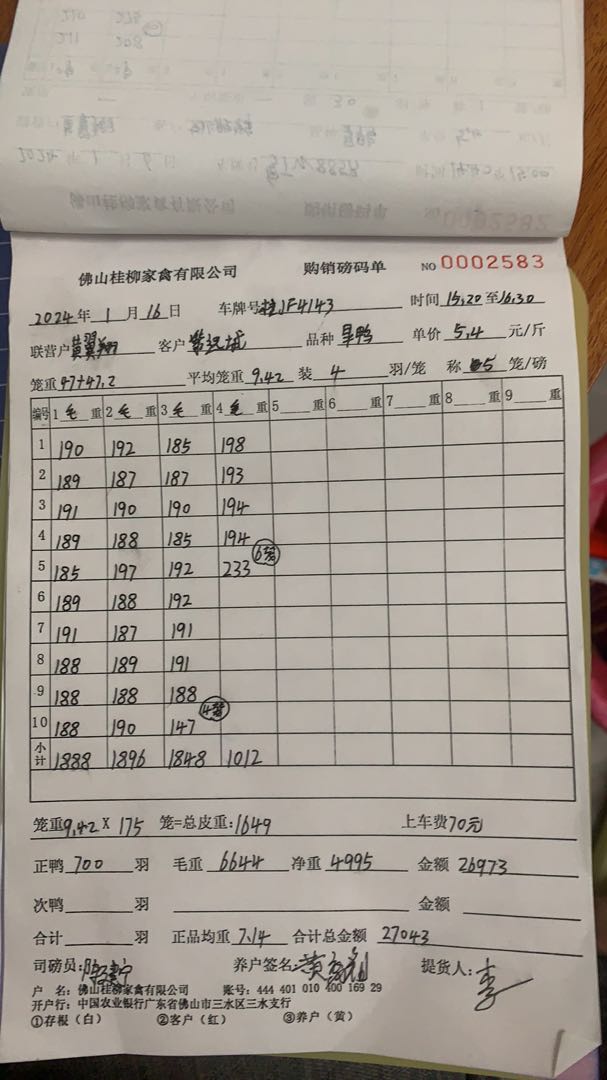 佛山桂柳家禽有限公司 购销磅码单 NO 0002583
2024年 1 月 16 日 车牌号桂JF4143 时间 15.20 至 16.30
联营户黄翼翔 客户 品种 旱鸭 单价 5.4 元/斤
笼重 47+47.2 平均笼重 9.42 装 4 羽/笼 称 5 笼/磅
编号 1 毛 重 2 毛 重 3 毛 重 4 毛 重 5 重 6 重 7 重 8 重 9 重
1 190 192 185 198
2 189 187 187 193
3 191 190 190 194
4 189 188 185 194
5 185 197 192 233 6笼
6 189 188 192
7 191 187 191
8 188 189 191
9 188 188 188
10 188 190 147 4笼
小计 1888 1896 1848 1012
笼重9.42 X 175 笼=总皮重:1649 上车费70元
正鸭 700 羽 毛重 6644 净重 4995 金额 26973
次鸭 羽 金额
合计 羽 正品均重 7.14 合计总金额 27043
司磅员: 养户签名: 提货人: 李
户 名: 佛山桂柳家禽有限公司 账号: 444 401 010 400 169 29
开户行: 中国农业银行广东省佛山市三水区三水支行
①存根（白） ②客户（红） ③养户（黄）